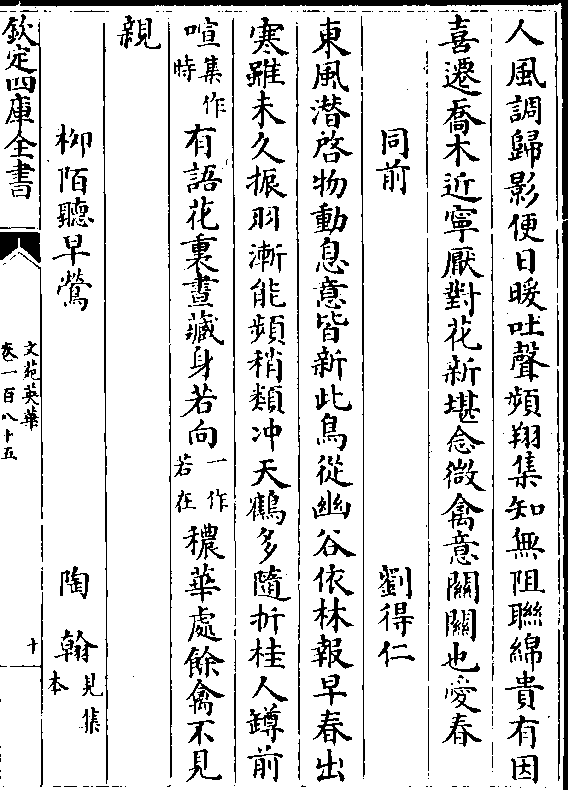 人風調歸影便日暖吐聲頻翔集知無阻聯綿貴有因
喜遷喬木近寧厭對花新堪念微禽意關關也愛春
同前 劉得仁
東風潛啓物動息意皆新此鳥從幽谷依林報早春出
寒雖未久振羽漸能頻稍類冲天鶴多隨折桂人罇前
喧集作時有語花裏晝藏身若向一作若在穠華處餘禽不見
親
柳陌聽早鶯 陶翰見集本
欽定四庫全書
文苑英華
卷一百八十五
十